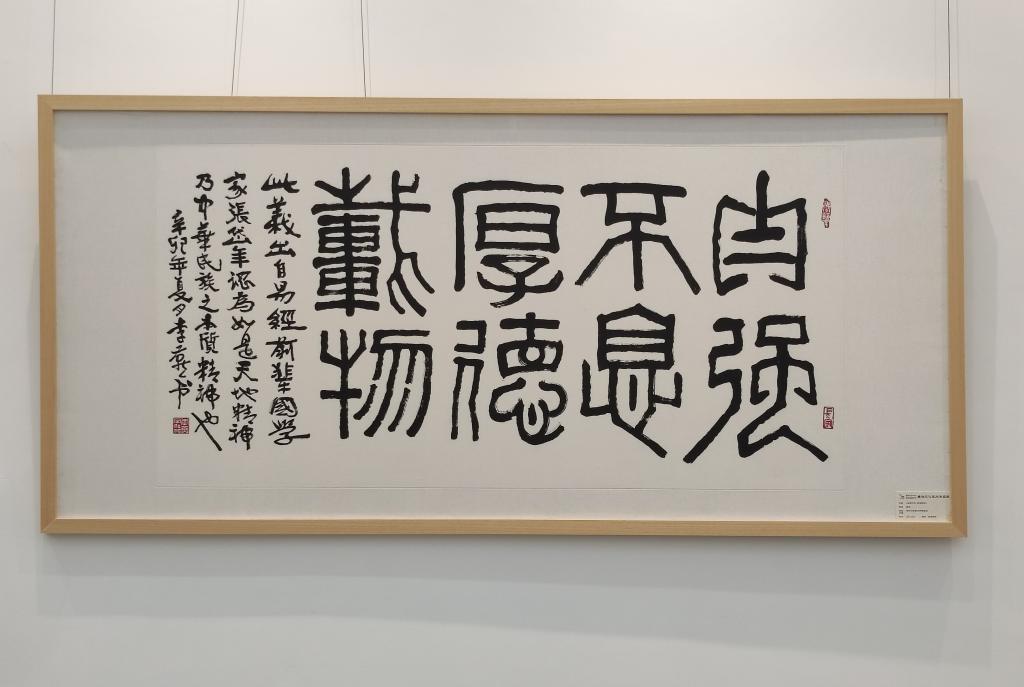 自强
不息
厚德
載物
此義出自易經前輩國學
家張岱年認為如是天地精神
乃中華民族之本質精神也
辛卯年夏月李燕书